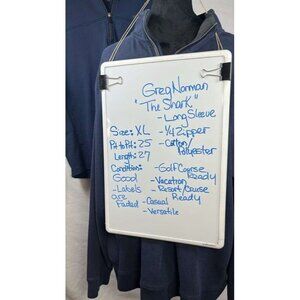 Greg Norman
"The Shark"
- Long Sleeve
Size: XL - 1/4 Zipper
Pit to Pit: 25 - Cotton/
Polyester
Length: 27
Condition: - Golf Course
Ready
Good - Vacation
- Labels - Resort/Cruise
Ready
are
Faded - Casual
- Versatile